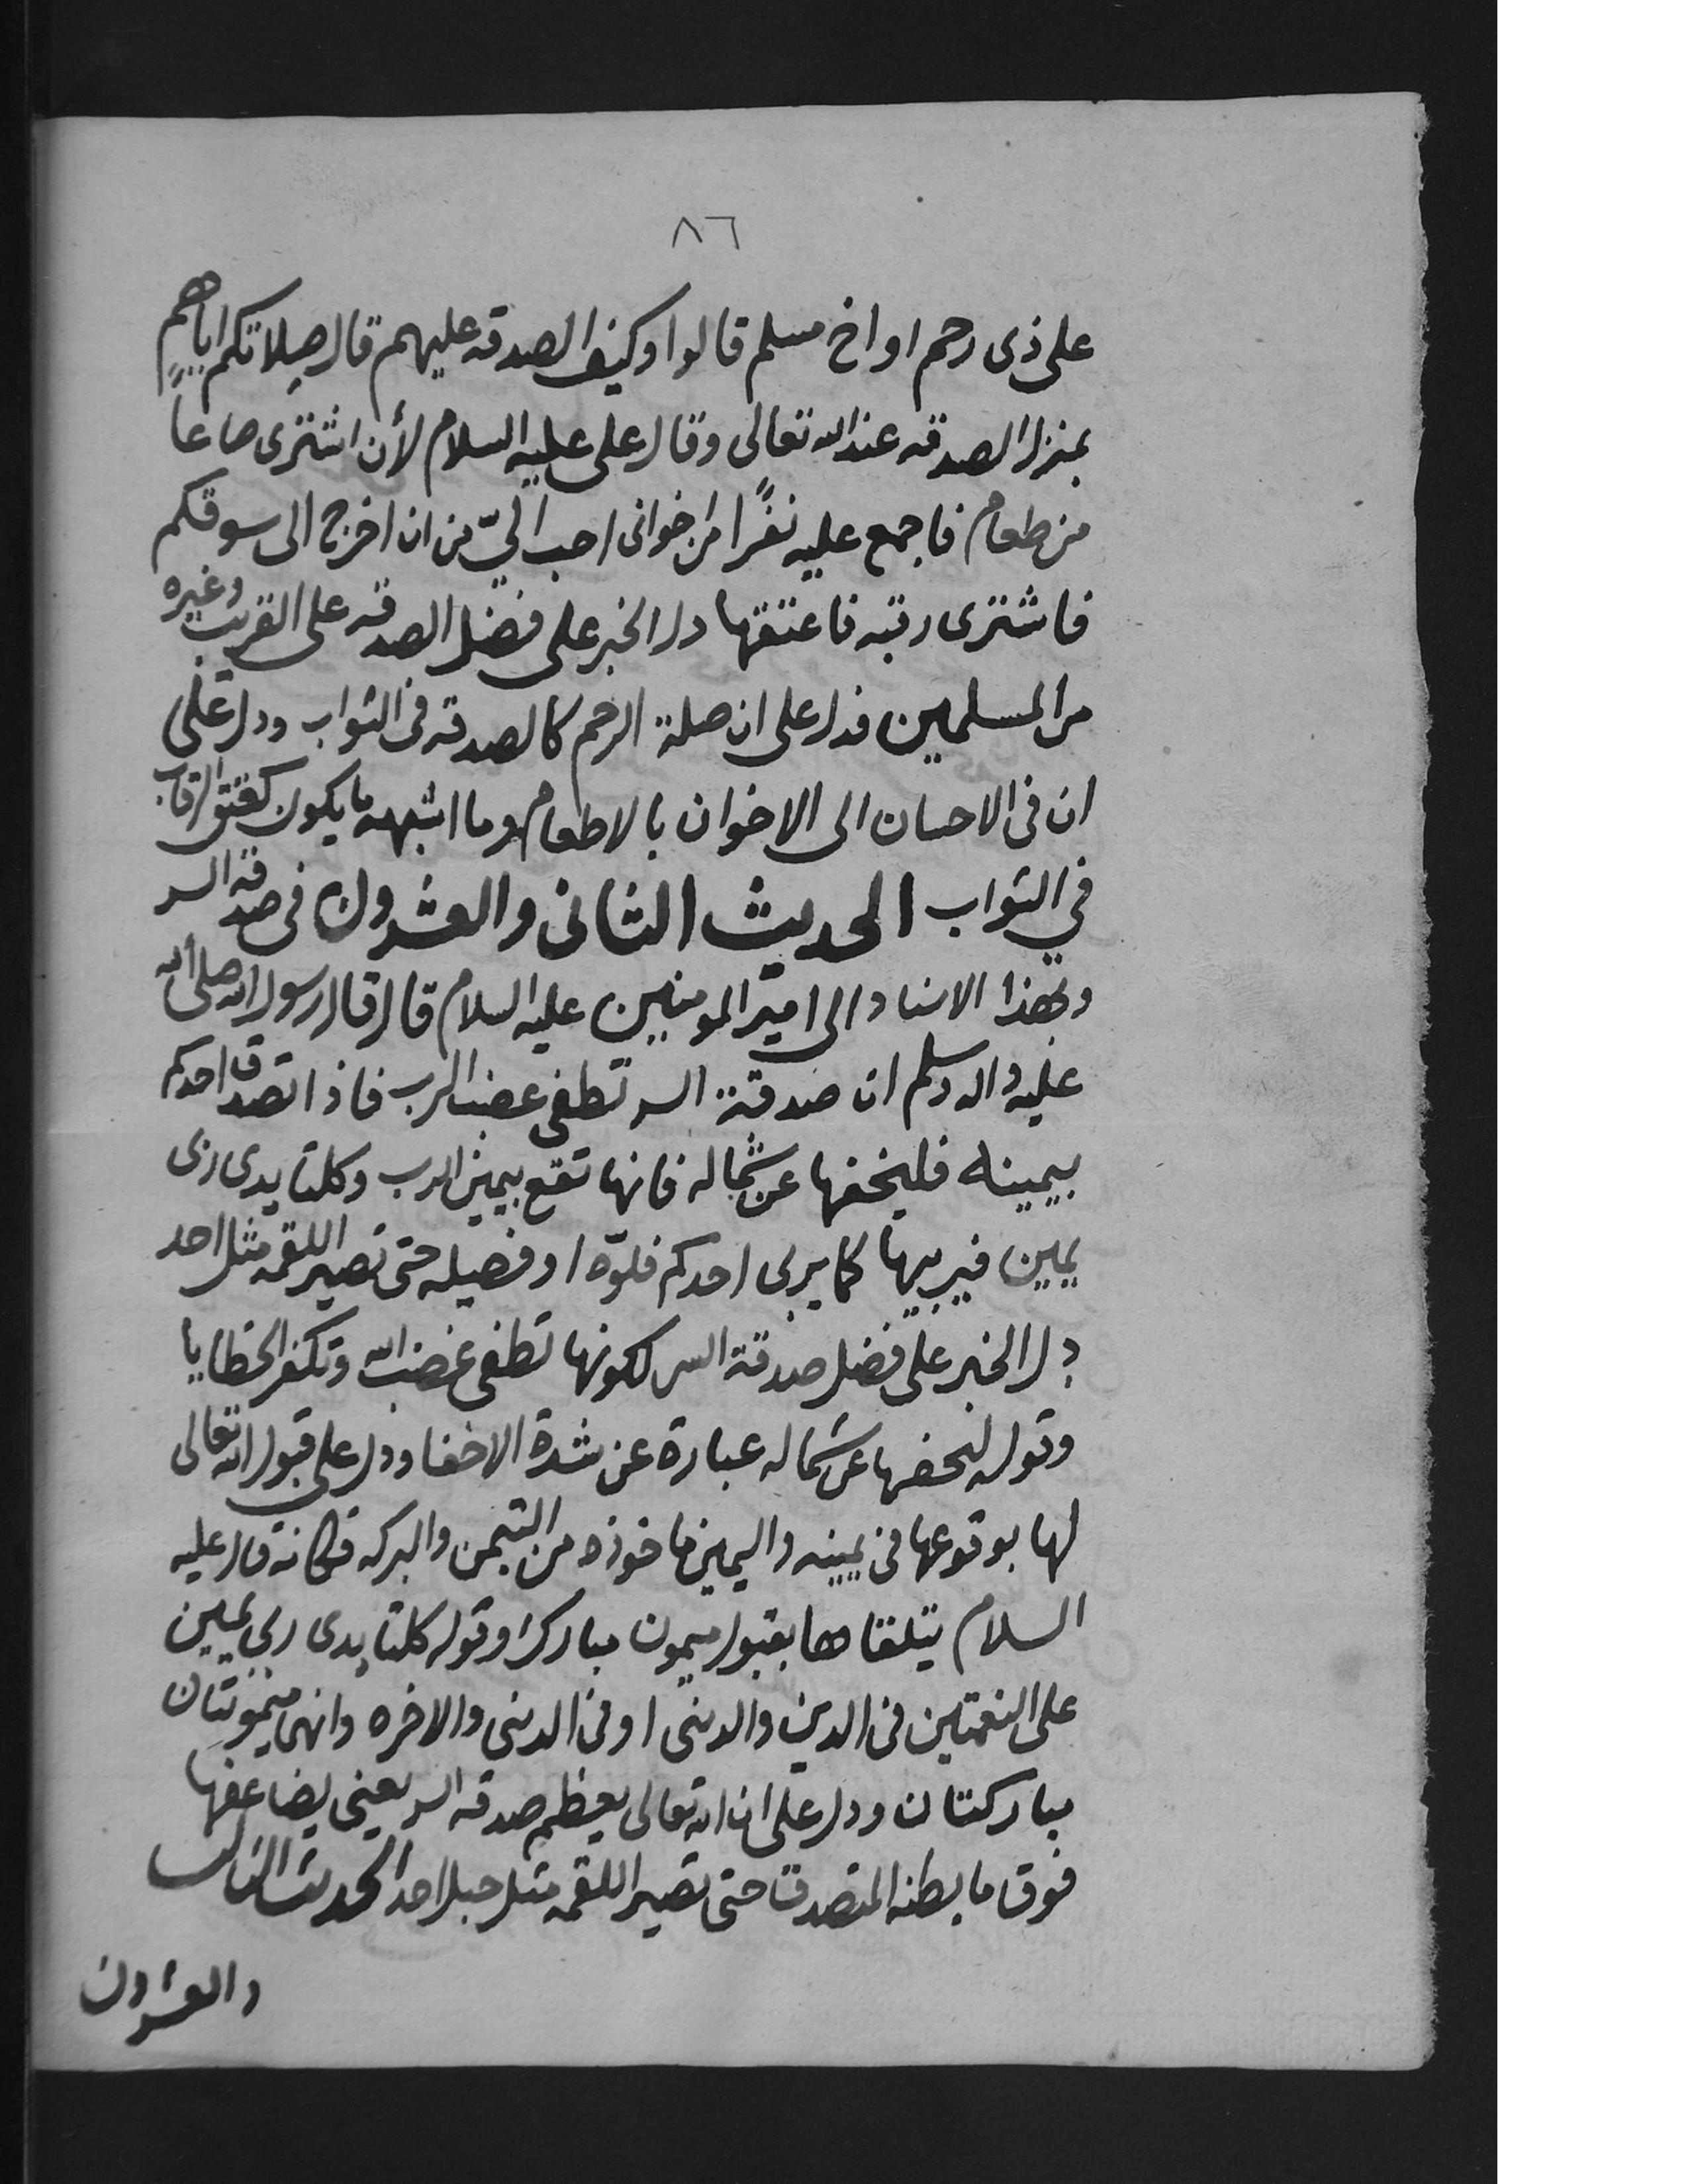 ٨٦
على ذى رحم او اخ مسلم قالوا وكيف الصدقه عليهم قال صِلاتكم اياهم
بمنزل الصدقه عند الله تعالى وقال على عليه السلام لأن اشترى صاعاً
من طعام فاجمع عليه نفرًا من اخوانى احب اليّ من ان اخرج الى سوقكم
فاشترى رقبه فاعتقها دل الخبر على فضل الصدقه على القريب وغيره
من المسلمين فدل على ان صلة الرحم كالصدقه فى الثواب ودل على
ان فى الاحسان الى الاخوان بالاطعام وما اشبهه ما يكون كعتق الرقاب
في الثواب الحديث الثانى والعشرون فى صدقة السر
وبهذا الاسناد الى امير المومنين عليه السلام قال قال رسول الله صلى الله
عليه واله وسلم ان صدقة السر تطفى غضب الرب فاذا تصدق احدكم
بيمينه فليخفها عن شماله فانها تقع بيمين الرب وكلتا يدى ربى
يمين فيربيها كما يربى احدكم فلوّه او فصيله حتى تصير اللقمه مثل احد
دل الخبر على فضل صدقة السر لكونها تطفى غضب الله وتكفر الخطايا
وقوله ليخفها عن شماله عبارة عن شدة الاخفا ودل على قبول الله تعالى
لها بوقوعها فى يمينه واليمين ماخوذه من التيمن والبركه فكانه قال عليه
السلام يتلقاها بقبول ميمون مبارك وقوله كلتا يدى ربى يمين
على النعمتين فى الدين والدنى او فى الدنى والاخره وانهما ميمونتان
مباركتان ودل على ان الله تعالى يعظم صدقه السر يعنى يضاعفها
فوق ما يظنه المتصدق حتى تصير اللقمه مثل جبل احد الحديث الثالث
والعشرون